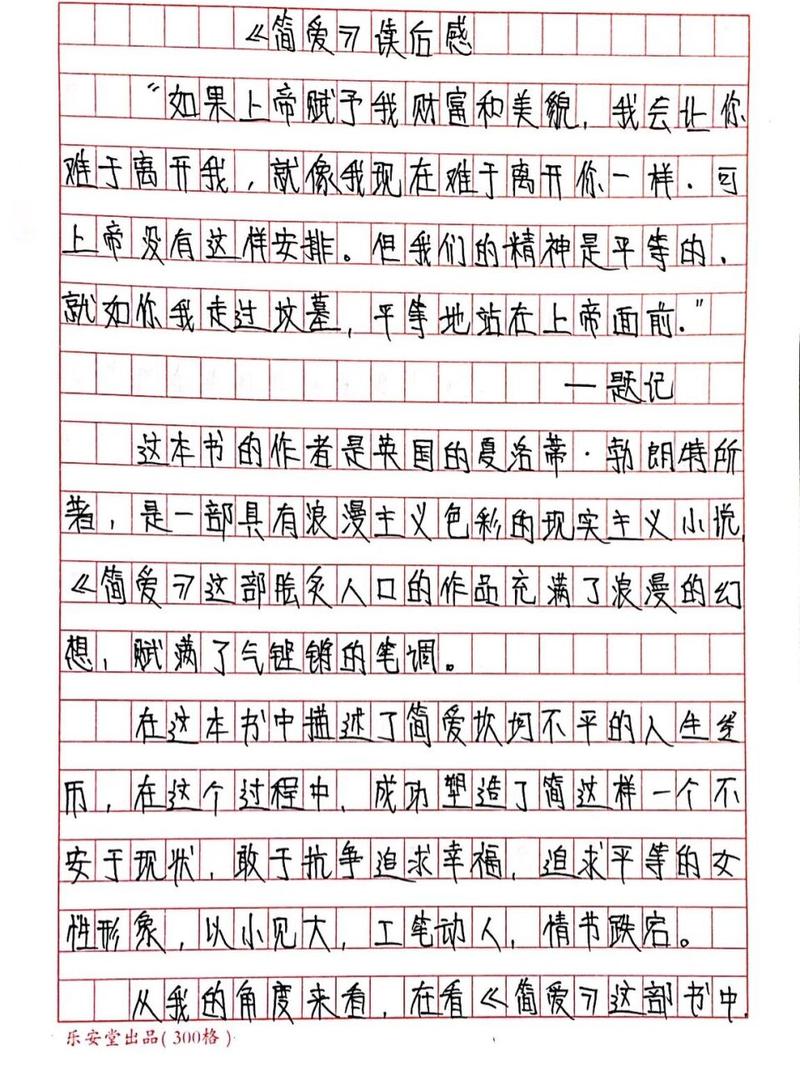 《简爱》读后感
“如果上帝赋予我财富和美貌,我会让你
难于离开我,就像我现在难于离开你一样.可
上帝没有这样安排。但我们的精神是平等的.
就如你我走过坟墓,平等地站在上帝面前.”
—题记
这本书的作者是英国的夏洛蒂·勃朗特所
著,是一部具有浪漫主义色彩的现实主义小说,
《简爱》这部脍炙人口的作品充满了浪漫的幻
想,赋满了气铿锵的笔调。
在这本书中描述了简爱坎坷不平的人生
历,在这个过程中,成功塑造了简这样一个不
安于现状,敢于抗争追求幸福,追求平等的女
性形象,以小见大,工笔动人,情节跌宕。
从我的角度来看,在看《简爱》这部书中,
乐安堂出品(300格)